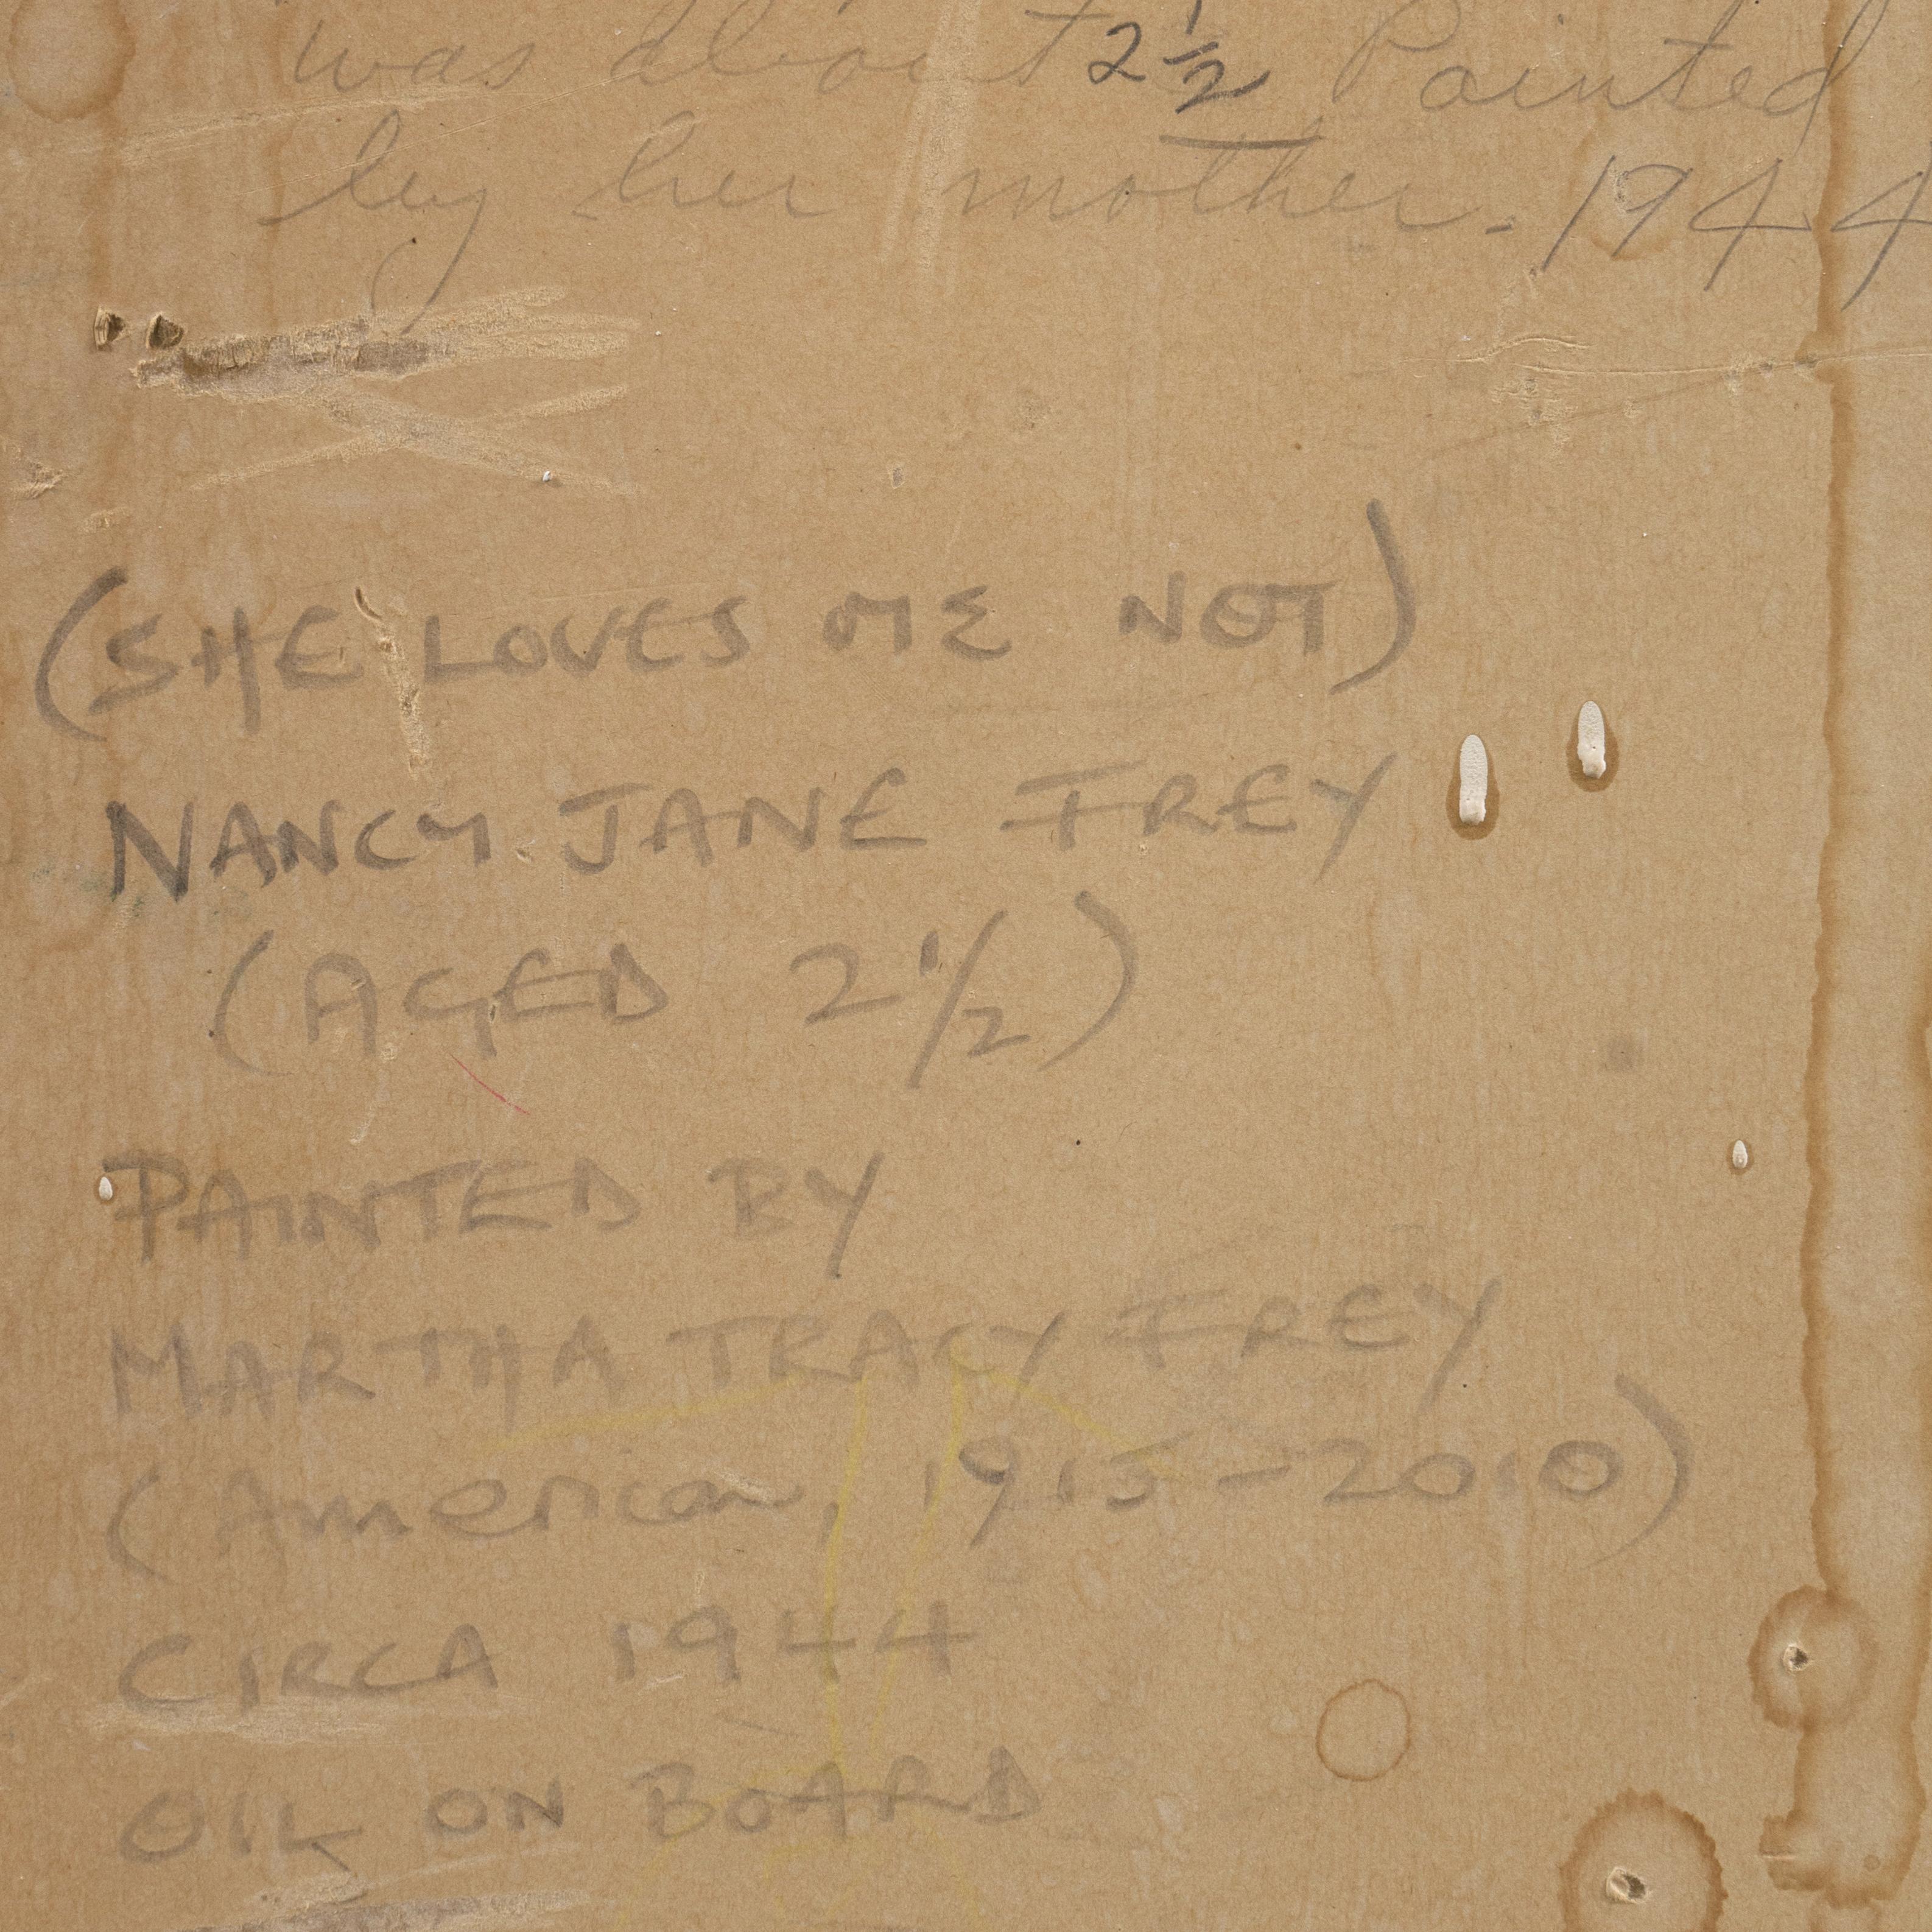 was about 2 1/2 Painted
by her mother. 1944
(SHE LOVES ME NOT)
NANCY JANE FREY
(AGED 2 1/2)
PAINTED BY
MARTHA TRACY FREY
(American, 1915-2010)
CIRCA 1944
OIL ON BOARD